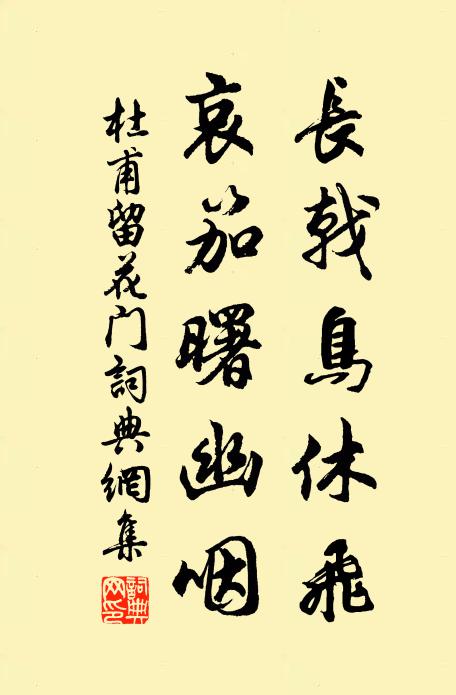 長戟鳥休飛
哀笳曙幽咽
杜甫留花门詞典網集
詞典网印